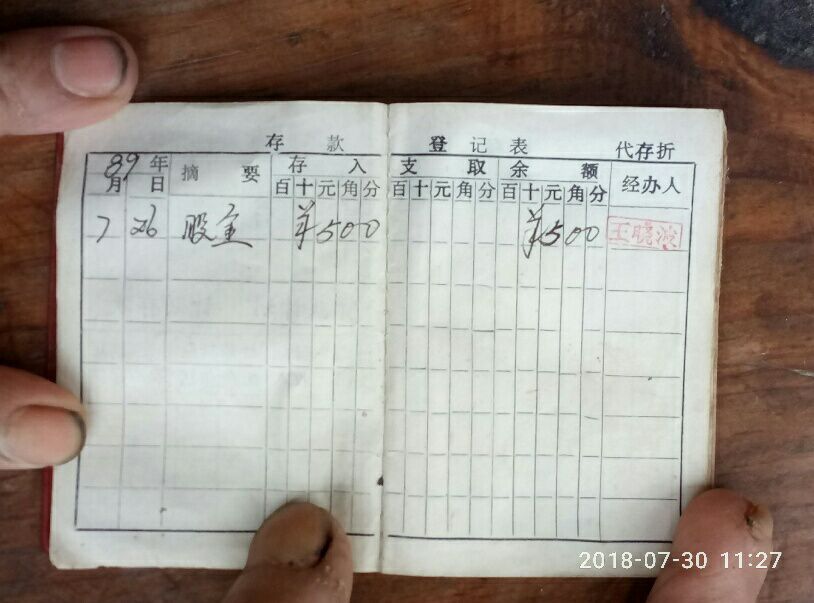 存款 登记表 代存折
89年 摘要 存入 支取 余额 经办人
月 日 百 十 元 角 分 百 十 元 角 分 百 十 元 角 分
7 26 股金 ¥500 ¥500 王晓波
2018-07-30 11:27